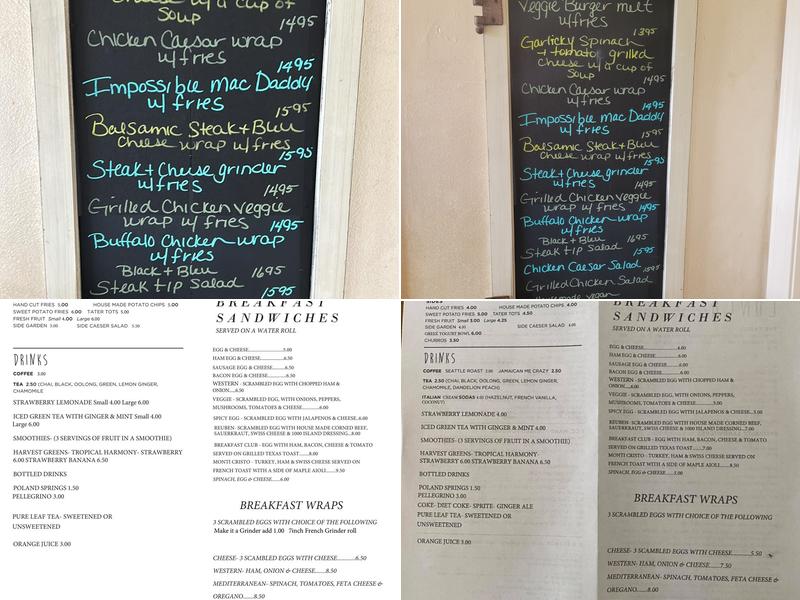 Cheese w/ a cup of
Soup
1495
Chicken Caesar wrap
w/fries
1495
Impossible Mac Daddy
w/ fries
1595
Balsamic Steak + Bleu
Cheese wrap w/fries
1595
Steak + Cheese grinder
w/fries
1495
Grilled Chicken Veggie
wrap w/ fries
1495
Buffalo Chicken wrap
w/fries
Black + Bleu 1695
Steak tip Salad
1595
Veggie Burger melt
w/fries
1395
Garlicky Spinach
+ tomato grilled
Cheese w/ a cup of
Soup
1495
Chicken Caesar wrap
w/fries
1495
Impossible Mac Daddy
w/ fries
1595
Balsamic Steak + Bleu
Cheese wrap w/fries
1595
Steak + Cheese grinder
w/fries
1495
Grilled Chicken Veggie
wrap w/ fries
1495
Buffalo Chicken wrap
w/fries
Black + Bleu 1695
Steak tip Salad
1595
Chicken Caesar Salad
1595
Grilled Chicken Salad
HAND CUT FRIES 5.00 HOUSE MADE POTATO CHIPS 5.00
SWEET POTATO FRIES 6.00 TATER TOTS 5.00
FRESH FRUIT Small 4.00 Large 6.00
SIDE GARDEN 5.00 SIDE CAESER SALAD 5.50
DRINKS
COFFEE 3.00
TEA 2.50 (CHAI, BLACK, OOLONG, GREEN, LEMON GINGER,
CHAMOMILE
STRAWBERRY LEMONADE Small 4.00 Large 6.00
ICED GREEN TEA WITH GINGER & MINT Small 4.00
Large 6.00
SMOOTHIES- (3 SERVINGS OF FRUIT IN A SMOOTHIE)
HARVEST GREENS- TROPICAL HARMONY- STRAWBERRY
6.00 STRAWBERRY BANANA 6.50
BOTTLED DRINKS
POLAND SPRINGS 1.50
PELLEGRINO 3.00
PURE LEAF TEA- SWEETENED OR
UNSWEETENED
ORANGE JUICE 3.00
BREAKFAST
SANDWICHES
SERVED ON A WATER ROLL
EGG & CHEESE..............5.00
HAM EGG & CHEESE..............6.50
SAUSAGE EGG & CHEESE..............6.50
BACON EGG & CHEESE..............6.50
WESTERN - SCRAMBLED EGG WITH CHOPPED HAM &
ONION.....6.50
VEGGIE - SCRAMBLED EGG WITH, ONIONS, PEPPERS,
MUSHROOMS, TOMATOES & CHEESE..............6.00
SPICY EGG - SCRAMBLED EGG WITH JALAPENOS & CHEESE..6.00
REUBEN- SCRAMBLED EGG WITH HOUSE MADE CORNED BEEF,
SAUERKRAUT, SWISS CHEESE & 1000 ISLAND DRESSING...8.00
BREAKFAST CLUB - EGG WITH HAM, BACON, CHEESE & TOMATO
SERVED ON GRILLED TEXAS TOAST.......8.00
MONTI CRISTO - TURKEY, HAM & SWISS SERVED ON
FRENCH TOAST WITH A SIDE OF MAPLE AIOLI.......9.50
SPINACH, EGG & CHEESE......6.00
BREAKFAST WRAPS
3 SCRAMBLED EGGS WITH CHOICE OF THE FOLLOWING
Make it a Grinder add 1.00 7inch French Grinder roll
CHEESE- 3 SCAMBLED EGGS WITH CHEESE............6.50
WESTERN- HAM, ONION & CHEESE.......8.50
MEDITERRANEAN- SPINACH, TOMATOES, FETA CHEESE &
OREGANO.......8.50
SIDES
HAND CUT FRIES 4.00 HOUSE MADE POTATO 4.00
SWEET POTATO FRIES 5.00 TATER TOTS 4.50
FRESH FRUIT Small 3.00 Large 4.25
SIDE GARDEN 4.00 SIDE CAESER SALAD 4.00
GREEK YOGURT BOWL 6.00
CHURROS 3.50
DRINKS
COFFEE SEATTLE ROAST 2.00 JAMAICAN ME CRAZY 2.50
TEA 2.50 (CHAI, BLACK, OOLONG, GREEN, LEMON GINGER,
CHAMOMILE, DANDELION PEACH)
ITALIAN CREAM SODAS 4.00 (HAZELNUT, FRENCH VANILLA,
COCONUT)
STRAWBERRY LEMONADE 4.00
ICED GREEN TEA WITH GINGER & MINT 4.00
SMOOTHIES- (3 SERVINGS OF FRUIT IN A SMOOTHIE)
HARVEST GREENS- TROPICAL HARMONY-
STRAWBERRY 6.00 STRAWBERRY BANANA 6.50
BOTTLED DRINKS
POLAND SPRINGS 1.50
PELLEGRINO 3.00
COKE- DIET COKE- SPRITE- GINGER ALE
PURE LEAF TEA- SWEETENED OR
UNSWEETENED
ORANGE JUICE 3.00
BREAKFAST
SANDWICHES
SERVED ON A WATER ROLL
EGG & CHEESE..............4.00
HAM EGG & CHEESE..............6.00
SAUSAGE EGG & CHEESE..............6.00
BACON EGG & CHEESE..............6.00
WESTERN - SCRAMBLED EGG WITH CHOPPED HAM &
ONION.....6.00
VEGGIE - SCRAMBLED EGG WITH, ONIONS, PEPPERS,
MUSHROOMS, TOMATOES & CHEESE..............5.00
SPICY EGG - SCRAMBLED EGG WITH JALAPENOS & CHEESE..5.00
REUBEN- SCRAMBLED EGG WITH HOUSE MADE CORNED BEEF,
SAUERKRAUT, SWISS CHEESE & 1000 ISLAND DRESSING...7.00
BREAKFAST CLUB - EGG WITH HAM, BACON, CHEESE & TOMATO
SERVED ON GRILLED TEXAS TOAST.......7.00
MONTI CRISTO - TURKEY, HAM & SWISS SERVED ON
FRENCH TOAST WITH A SIDE OF MAPLE AIOLI.......8.50
SPINACH, EGG & CHEESE......5.00
BREAKFAST WRAPS
3 SCRAMBLED EGGS WITH CHOICE OF THE FOLLOWING
CHEESE- 3 SCAMBLED EGGS WITH CHEESE............5.50
WESTERN- HAM, ONION & CHEESE.......7.50
MEDITERRANEAN- SPINACH, TOMATOES, FETA CHEESE &
OREGANO.......8.00